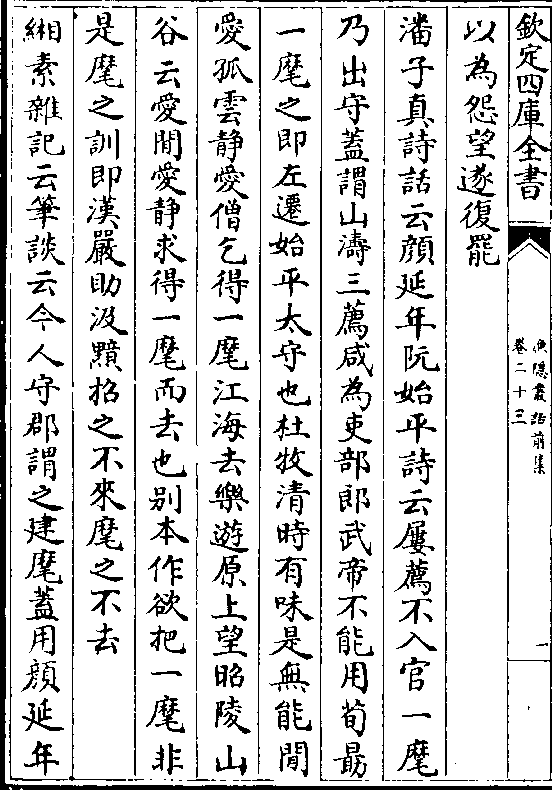 欽定四庫全書
漁隱叢話前集
卷二十三
一
以為怨望遂復罷
潘子真詩話云顔延年阮始平詩云屢薦不入官一麾
乃出守蓋謂山濤三薦咸為吏部郎武帝不能用荀朂
一麾之即左遷始平太守也杜牧清時有味是無能閒
愛孤雲静愛僧乞得一麾江海去樂遊原上望昭陵山
谷云愛閒愛静求得一麾而去也别本作欲把一麾非
是麾之訓即漢嚴助汲黯招之不來麾之不去
緗素雜記云筆談云今人守郡謂之建麾蓋用顔延年